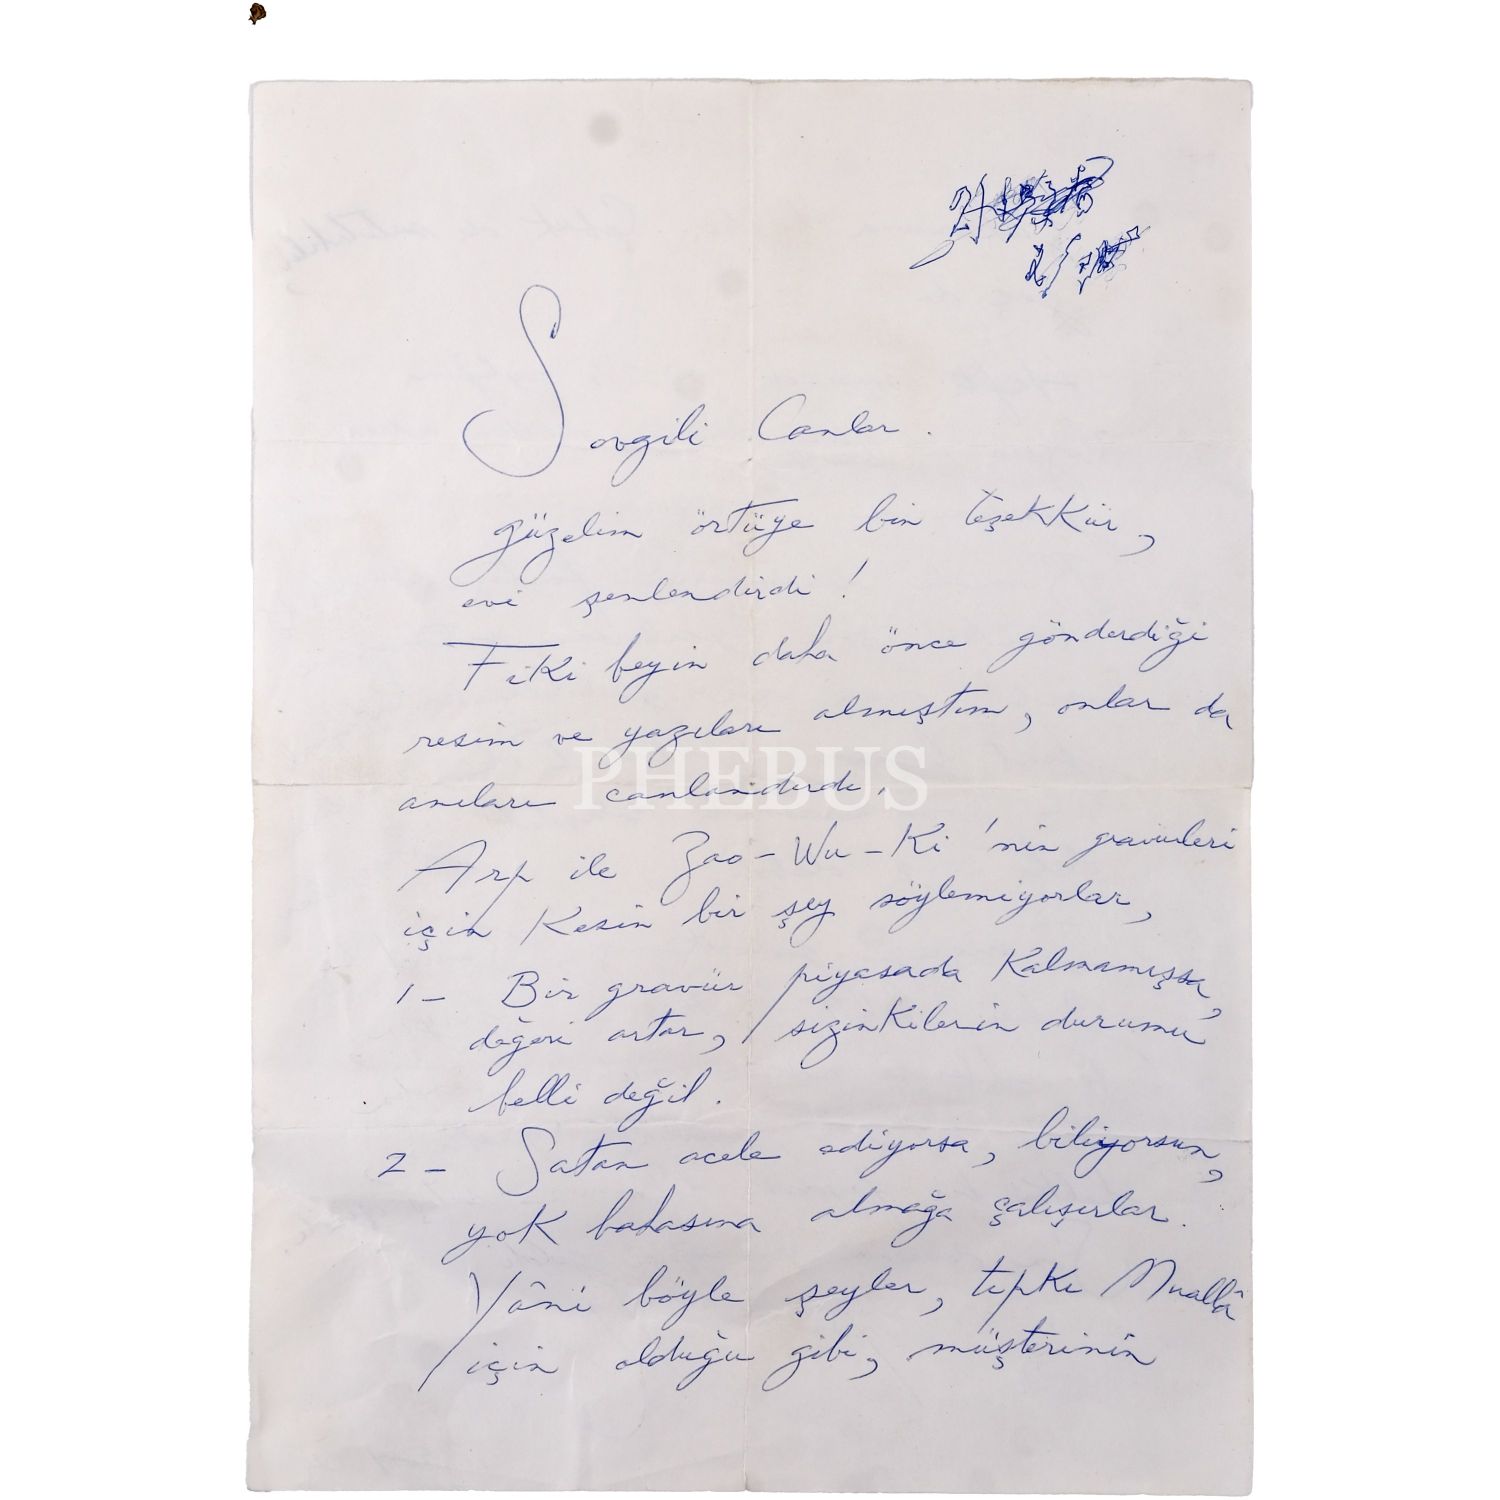 Sevgili Canlar.
güzelim örtüye bin teşekkür,
evi şenlendirdi!
Fikri beyin daha önce gönderdiği
resim ve yazıları almıştım, onlar da
anıları canlandırdı.
PHEBUS
Arp ile Zao-Wu-Ki'nin gravürleri
için kesin bir şey söylemiyorlar,
1- Bir gravür piyasada kalmamışsa,
değeri artar, sizinkilerin durumu
belli değil.
2- Satan acele ediyorsa, biliyorsun,
yok bahasına almağa çalışırlar.
Yâni böyle şeyler, tıpkı Muallâ
için olduğu gibi, müşterinin